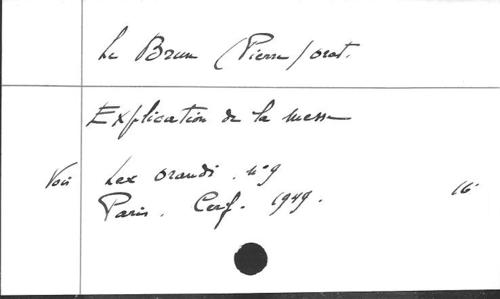 Le Brun (Pierre) orat.
Explication de la messe
Voir Lex orandi. n°9
Paris. Cerf. 1949. 16°